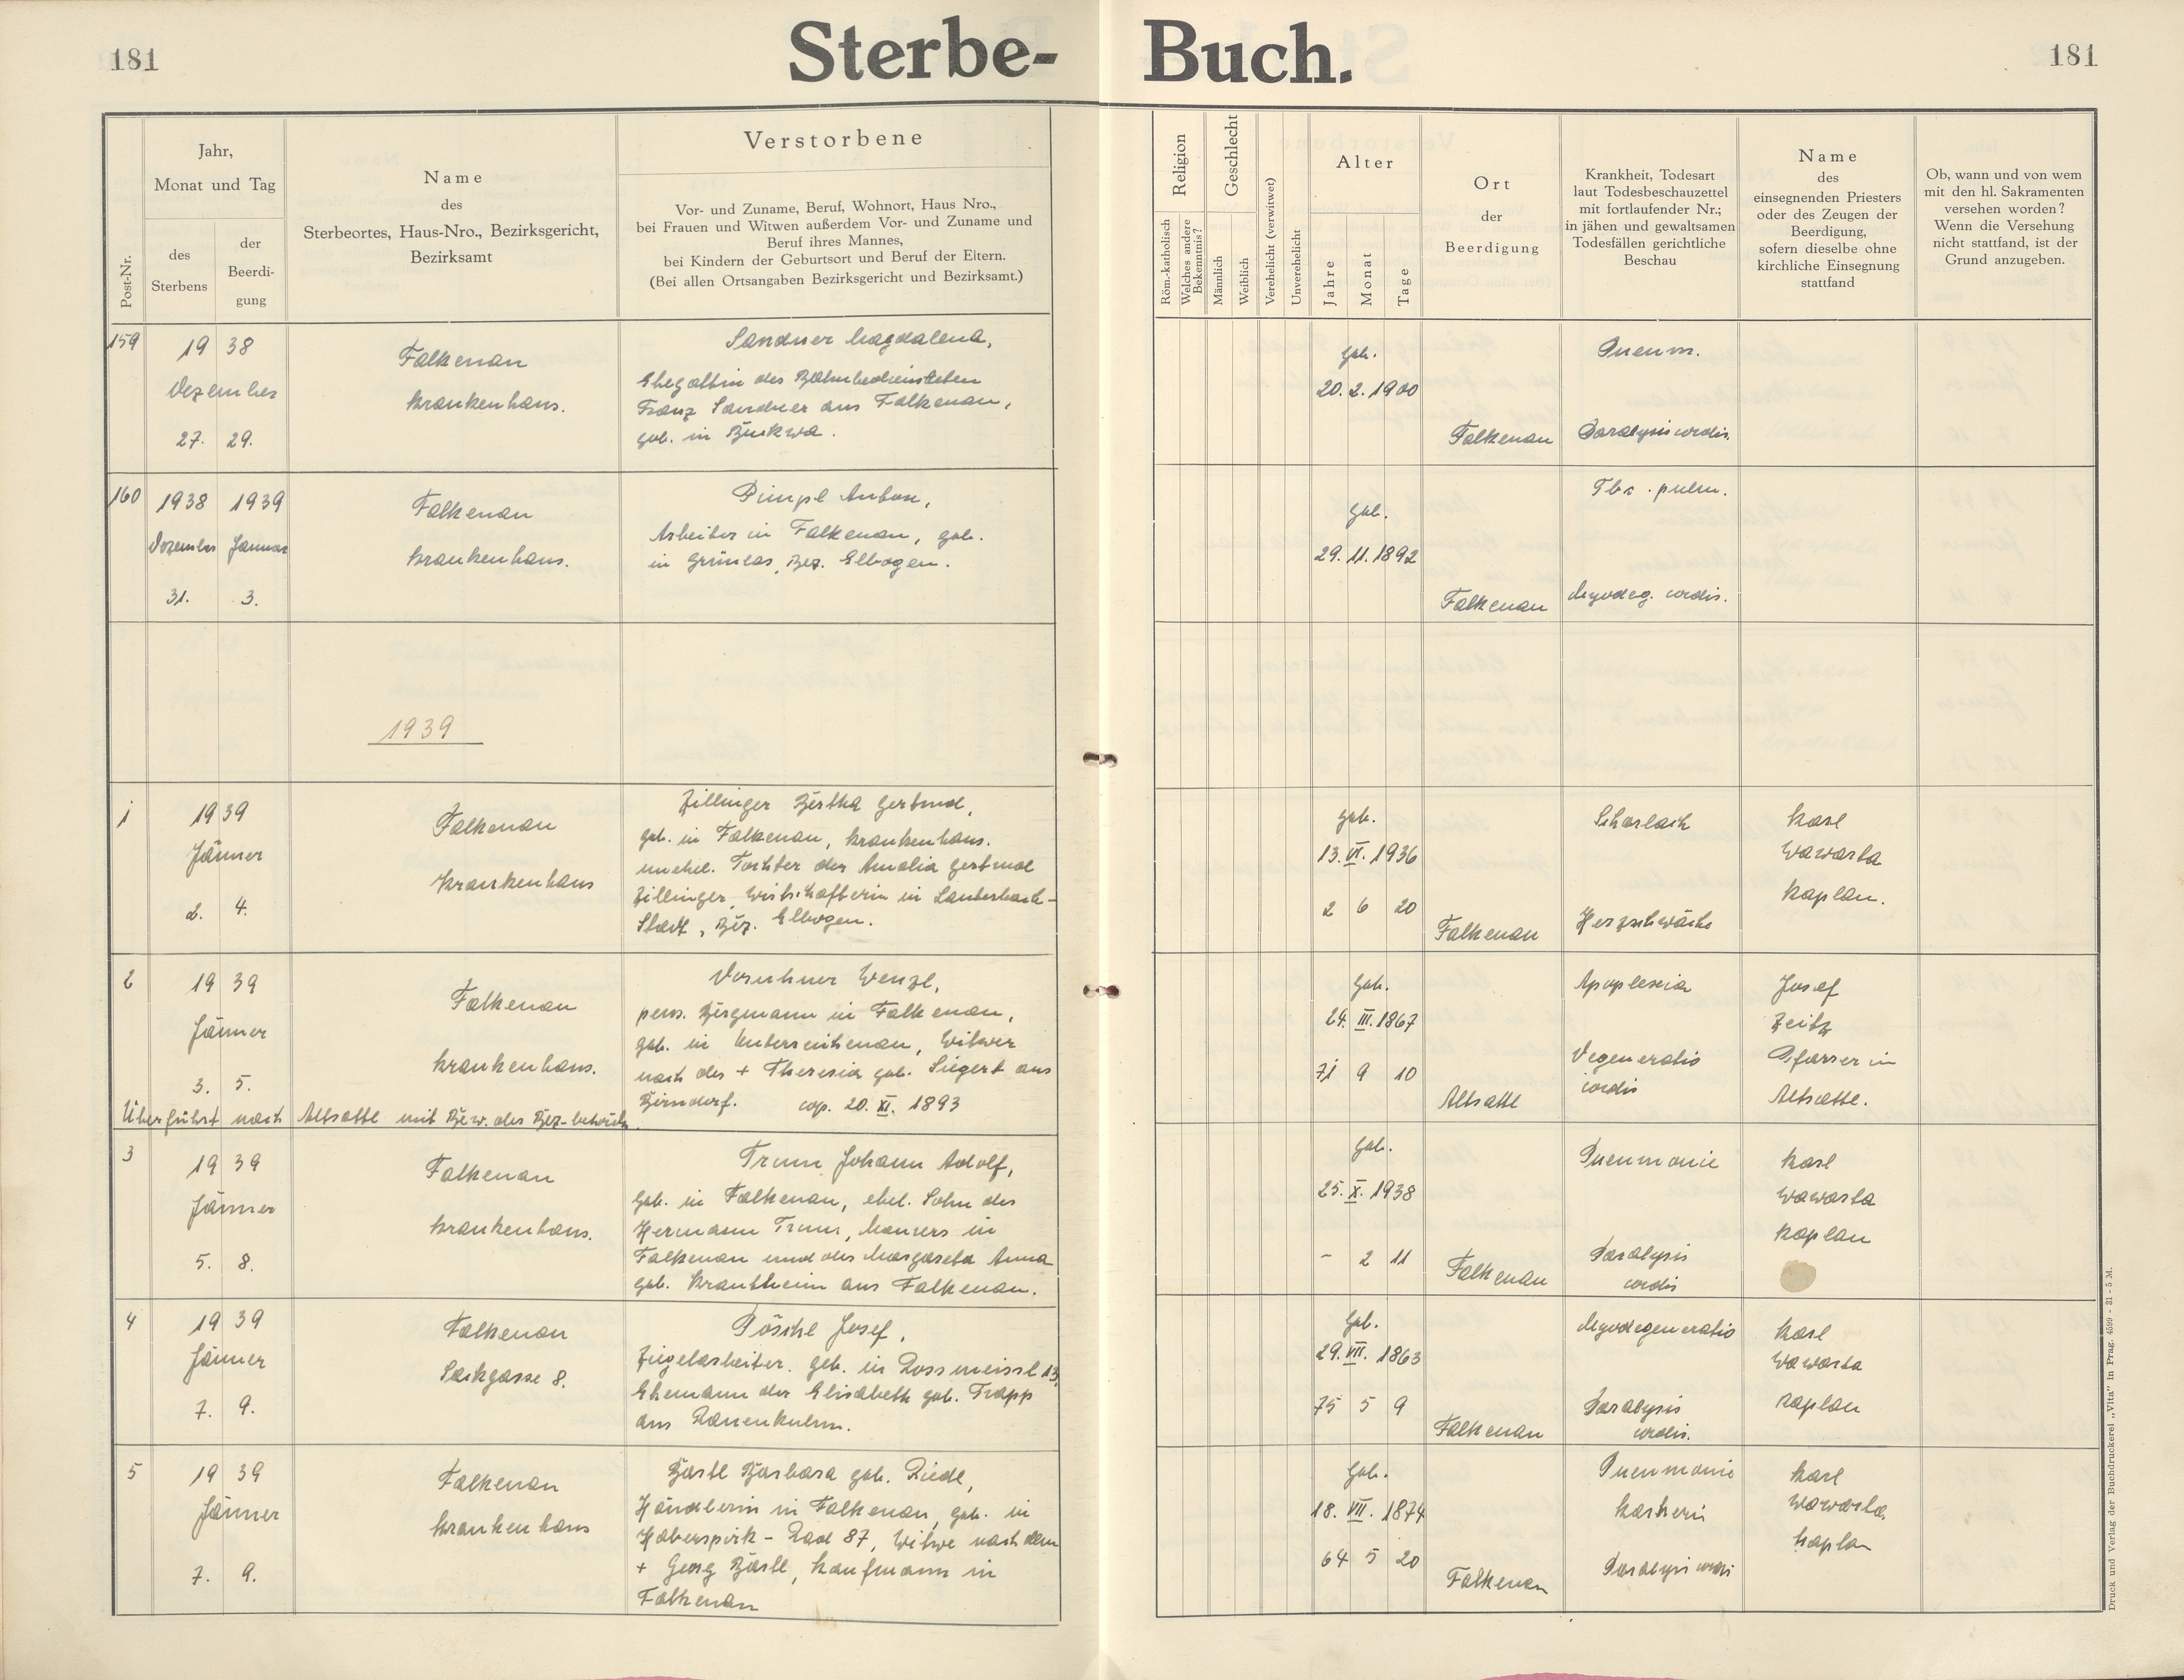 181
Sterbe-Buch.
181
Post-Nr.
Jahr,
Monat und Tag
des
Sterbens
der
Beerdi-
gung
Name
des
Sterbeortes, Haus-Nro., Bezirksgericht,
Bezirksamt
Verstorbene
Vor- und Zuname, Beruf, Wohnort, Haus Nro.,
bei Frauen und Witwen außerdem Vor- und Zuname und
Beruf ihres Mannes,
bei Kindern der Geburtsort und Beruf der Eltern.
(Bei allen Ortsangaben Bezirksgericht und Bezirksamt.)
Religion
Röm.-katholisch
Welches andere
Bekenntnis?
Geschlecht
Männlich
Weiblich
Verehelicht (verwitwet)
Unverehelicht
Alter
Jahre
Monat
Tage
Ort
der
Beerdigung
Krankheit, Todesart
laut Todesbeschauzettel
mit fortlaufender Nr.;
in jähen und gewaltsamen
Todesfällen gerichtliche
Beschau
Name
des
einsegnenden Priesters
oder des Zeugen der
Beerdigung,
sofern dieselbe ohne
kirchliche Einsegnung
stattfand
Ob, wann und von wem
mit den hl. Sakramenten
versehen worden?
Wenn die Versehung
nicht stattfand, ist der
Grund anzugeben.
159
19 38
Dezember
27. 29.
Falkenau
Krankenhaus.
Sandner Magdalena,
Ehegattin des Bahnbediensteten
Franz Sandner aus Falkenau,
geb. in Bukwa.
geb.
20. 2. 1900
Falkenau
Pneum.
Paralysis cordis.
160
1938 1939
Dezember Januar
31. 3.
Falkenau
Krankenhaus.
Pimpl Anton,
Arbeiter in Falkenau, geb.
in Grünlas, Bez. Elbogen.
geb.
29. 11. 1892
Falkenau
Tbc. pulm.
Myodeg. cordis.
1939
1
19 39
Jänner
2. 4.
Falkenau
Krankenhaus
Zillinger Bertha Gertrud,
geb. in Falkenau, Krankenhaus.
unehel. Tochter der Amalia Gertrud
Zillinger, Wirtschafterin in Lauterbach-
Stadt, Bez. Elbogen.
geb.
13. VI. 1936
2 6 20
Falkenau
Scharlach
Herzschwäche
Karl
Wawarta
Kaplan.
2
19 39
Jänner
3. 5.
Falkenau
Krankenhaus.
Überführt nach Altsattl mit Bew. der Bez-behörde
Wenzl,
pens. Bergmann in Falkenau,
geb. in Unterreichenau, Witwer
nach der + Theresia geb. Siegert aus
Birndorf. cop. 20. XI. 1893
geb.
24. III. 1867
71 9 10
Altsattl
Apoplexia
Degeneratio
cordis
Josef
Zeitz
Pfarrer in
Altsattl.
3
19 39
Jänner
5. 8.
Falkenau
Krankenhaus.
Trum Johann Adolf,
geb. in Falkenau, ehel. Sohn des
Hermann Trum, Maurers in
Falkenau und der Margareta Anna
geb. Krautheim aus Falkenau.
geb.
25. X. 1938
- 2 11
Falkenau
Pneumonie
Paralysis
cordis
Karl
Wawarta
Kaplan
4
19 39
Jänner
7. 9.
Falkenau
Sackgasse 8.
Pöschl Josef,
Ziegelarbeiter, geb. in Rossmeissl 13,
Ehemann der Elisabeth geb. Trapp
aus Rauenkulm.
geb.
29. VII. 1863
75 5 9
Falkenau
Myodegeneratio
Paralysis
cordis.
Karl
Wawarta
Kaplan
5
19 39
Jänner
7. 9.
Falkenau
Krankenhaus
Bartl Barbara geb. Riedl,
Händlerin in Falkenau, geb. in
Haberspirk - Rad 87, Witwe nach dem
+ Georg Bartl, Kaufmann in
Falkenau
geb.
18. VII. 1874
64 5 20
Falkenau
Pneumonie
Paralysis cordis
Karl
Wawarta.
Kaplan
Druck und Verlag der Buchdruckerei „Vita" in Prag. 4599 - 31 - 5 M.